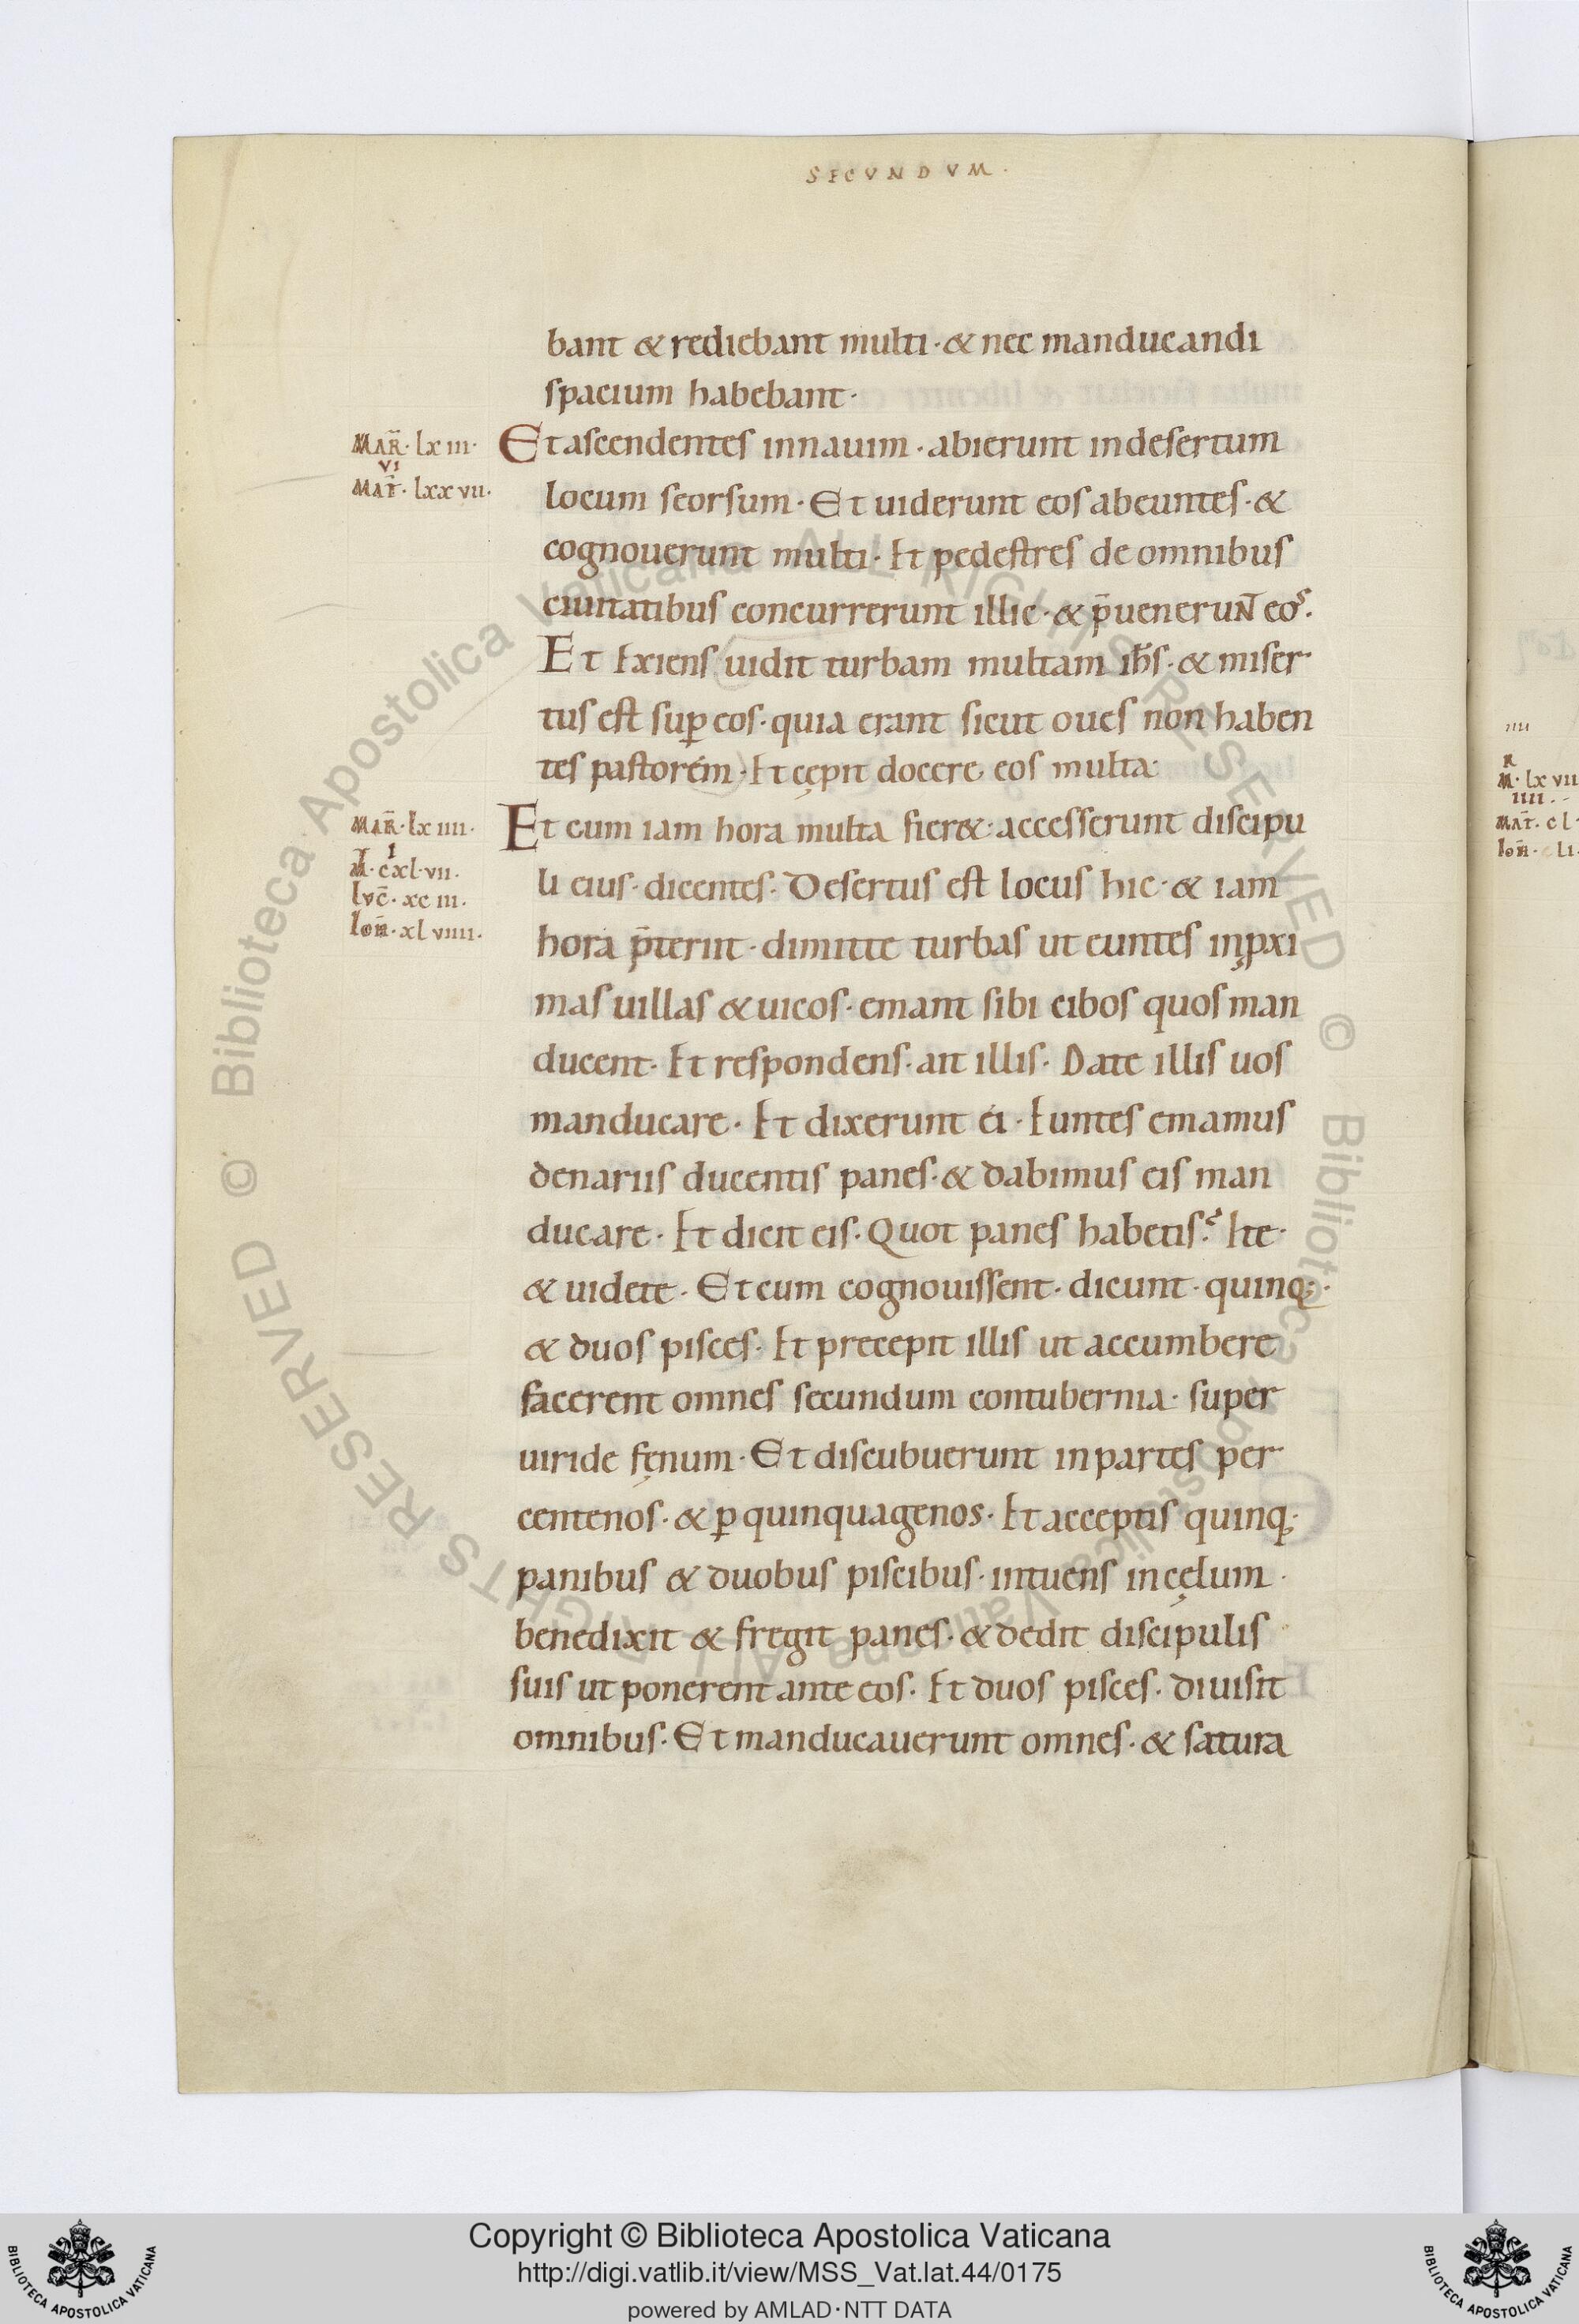 SECVNDVM·
bant & rediebant multi·& nec manducandi
spacium habebant·
MAR̄· lxiii·
VI
MAT̄· lxxvii·
Et ascendentes in nauim·abierunt in desertum
locum seorsum·Et uiderunt eos abeuntes·&
cognouerunt multi·Et pedestres de omnibus
ciuitatibus concurrerunt illic·& p̄uenerun̄t eos·
Et Exiens uidit turbam multam ih̄s·& miser
tus est suꝑ eos·quia erant sicut oues non haben
tes pastorem·Et cępit docere eos multa·
MAR̄·lxiiii·
I
M̄·cxl·vii·
lvc̄·xciii·
Ioh̄·xlviiii·
Et cum iam hora multa fier&·accesserunt discipu
li eius·dicentes·Desertus est locus hic·& iam
hora p̄teriit·dimitte turbas ut euntes in ꝓxi
mas uillas & uicos·emant sibi cibos quos man
ducent·Et respondens·ait illis·Date illis uos
manducare·Et dixerunt ei·Euntes emamus
denariis ducentis panes·& dabimus eis man
ducare·Et dicit eis·Quot panes habetis? Ite·
& uidete·Et cum cognouissent·dicunt·quinq;·
& duos pisces·Et precepit illis ut accumbere
facerent omnes secundum contubernia·super
uiride fęnum·Et discubuerunt in partes per
centenos·& ꝑ quinquagenos·Et acceptis quinq;·
panibus & duobus piscibus·intuens in cęlum·
benedixit & fregit panes·& dedit discipulis
suis ut ponerent ante eos·Et duos pisces·diuisit
omnibus·Et manducauerunt omnes·& satura
IIII
R
M·lxvii
IIII·
MAT̄·cl
Ioh̄·li·
© Biblioteca Apostolica Vaticana ALL RIGHTS RESERVED © Biblioteca Apostolica Vaticana ALL RIGHTS RESERVED
Copyright © Biblioteca Apostolica Vaticana
http://digi.vatlib.it/view/MSS_Vat.lat.44/0175
powered by AMLAD·NTT DATA
BIBLIOTECA APOSTOLICA VATICANA
BIBLIOTECA APOSTOLICA VATICANA